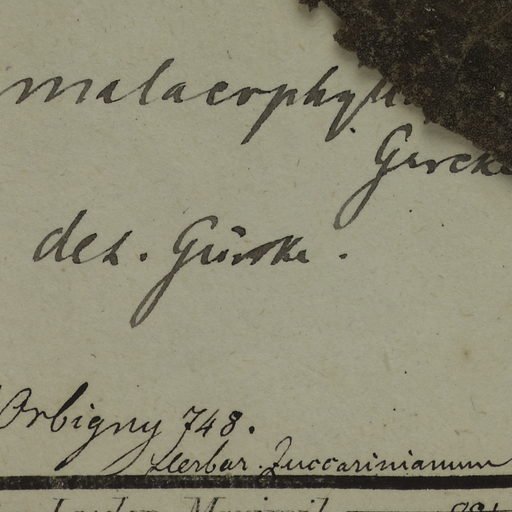 malacophyll
Gurcke
det. Gürcke.
Orbigny 748.
Herbar. Zuccarinianum